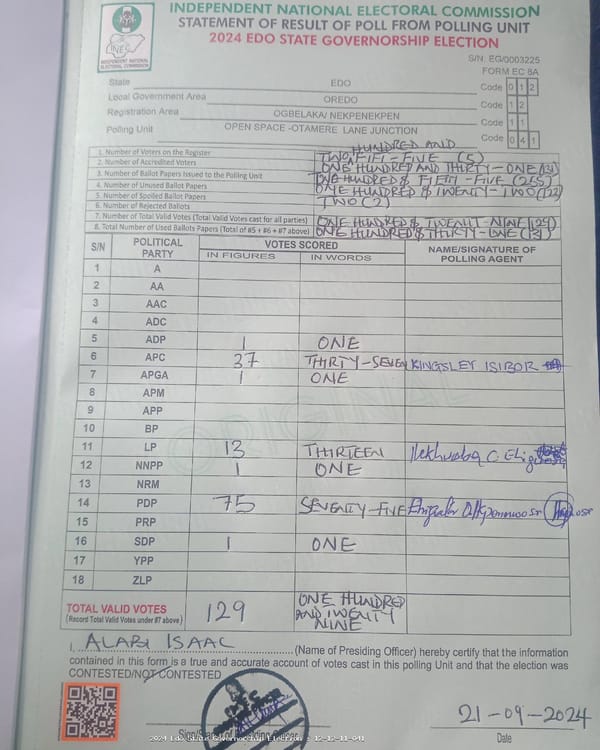 INDEPENDENT NATIONAL ELECTORAL COMMISSION
STATEMENT OF RESULT OF POLL FROM POLLING UNIT
2024 EDO STATE GOVERNORSHIP ELECTION
INEC
INDEPENDENT NATIONAL
ELECTORAL COMMISSION
S/N. EG/0003225
FORM EC 8A
State EDO Code 0 1 2
Local Government Area OREDO Code 1 2
Registration Area OGBELAKA/ NEKPENEKPEN Code 1 1
Polling Unit OPEN SPACE -OTAMERE LANE JUNCTION Code 0 4 1
1. Number of Voters on the Register HUNDRED AND
TWO FIFI-FIVE (5)
2. Number of Accredited Voters ONE HUNDRED AND THIRTY-ONE (131)
3. Number of Ballot Papers Issued to the Polling Unit HUNDRED & FIFTI-FIVE (255)
4. Number of Unused Ballot Papers ONE HUNDRED & TWENTY-TWO (122)
5. Number of Spoiled Ballot Papers TWO (2)
6. Number of Rejected Ballots
7. Number of Total Valid Votes (Total Valid Votes cast for all parties) ONE HUNDRED & TWENTI-NINE (129)
8. Total Number of Used Ballots Papers (Total of #5 + #6 + #7 above) ONE HUNDRED & THIRTY-ONE (131)
S/N POLITICAL PARTY VOTES SCORED NAME/SIGNATURE OF POLLING AGENT
IN FIGURES IN WORDS
1 A
2 AA
3 AAC
4 ADC
5 ADP 1 ONE
6 APC 37 THIRTY-SEVEN KINGSLEY ISIBOR
7 APGA 1 ONE
8 APM
9 APP
10 BP
11 LP 13 THIRTEEN
12 NNPP 1 ONE
13 NRM
14 PDP 75 SEVENTY-FIVE
15 PRP
16 SDP 1 ONE
17 YPP
18 ZLP
TOTAL VALID VOTES 129 ONE HUNDRED AND TWENTY NINE
(Record Total Valid Votes under #7 above)
I, ALABI ISAAC (Name of Presiding Officer) hereby certify that the information
contained in this form is a true and accurate account of votes cast in this polling Unit and that the election was
CONTESTED/NOT CONTESTED
21-09-2024
Date
2024 Edo State Governorship Election - 12-12-11-041
ORIGINAL